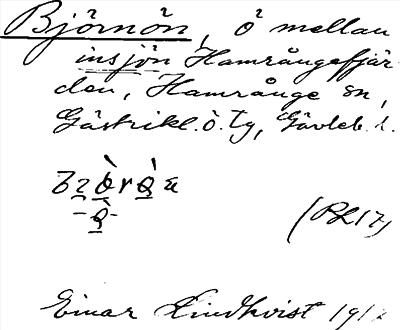 Björnön, ö mellan
insjön Hamrångefjär-
den, Hamrånge sn,
Gästrikl. ö. tg, Gävleb. l.
(RL17)
Einar Lindkvist 191